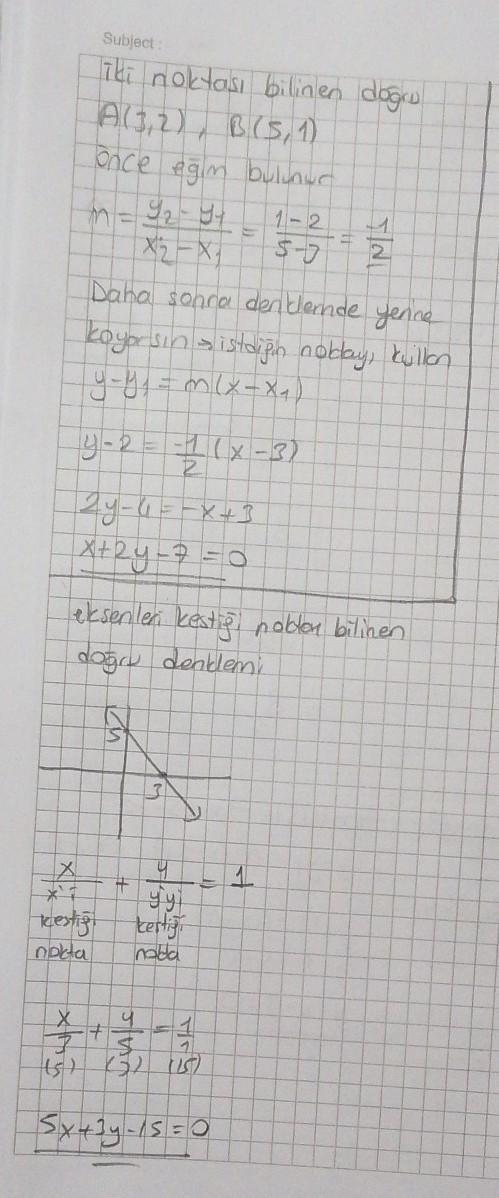 Subject:
İki noktası bilinen doğru
A(3,2), B(5,1)
önce eğim bulunur
m = y₂-y₁ / x₂-x₁ = 1-2 / 5-3 = -1/2
Daha sonra denklemde yerine
koyarsın → istdiğin noktayı kullan
y-y₁ = m(x-x₁)
y-2 = -1/2 (x-3)
2y-4 = -x+3
x+2y-7 = 0
eksenleri kestiği noktaları bilinen
doğru denklemi
5
3
x / x'i + y / y'yi = 1
kestiği kestiği
nokta nokta
x/3 + y/5 = 1/1
(5) (3) (15)
5x+3y-15=0